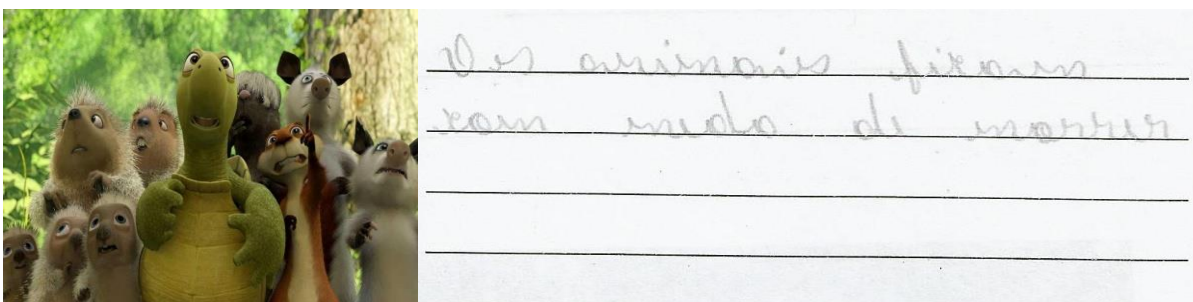 Os animais ficam
com medo de morrer